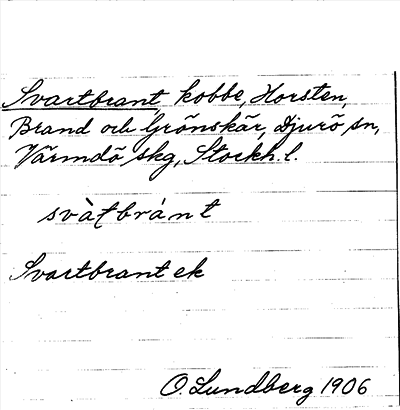 Svartbrant, kobbe, Horsten,
Brand och Grönskär, Djurö sn,
Värmdö skg, Stockh. l.
svàt̨bránt
Svartbrant ek
O. Lundberg 1906